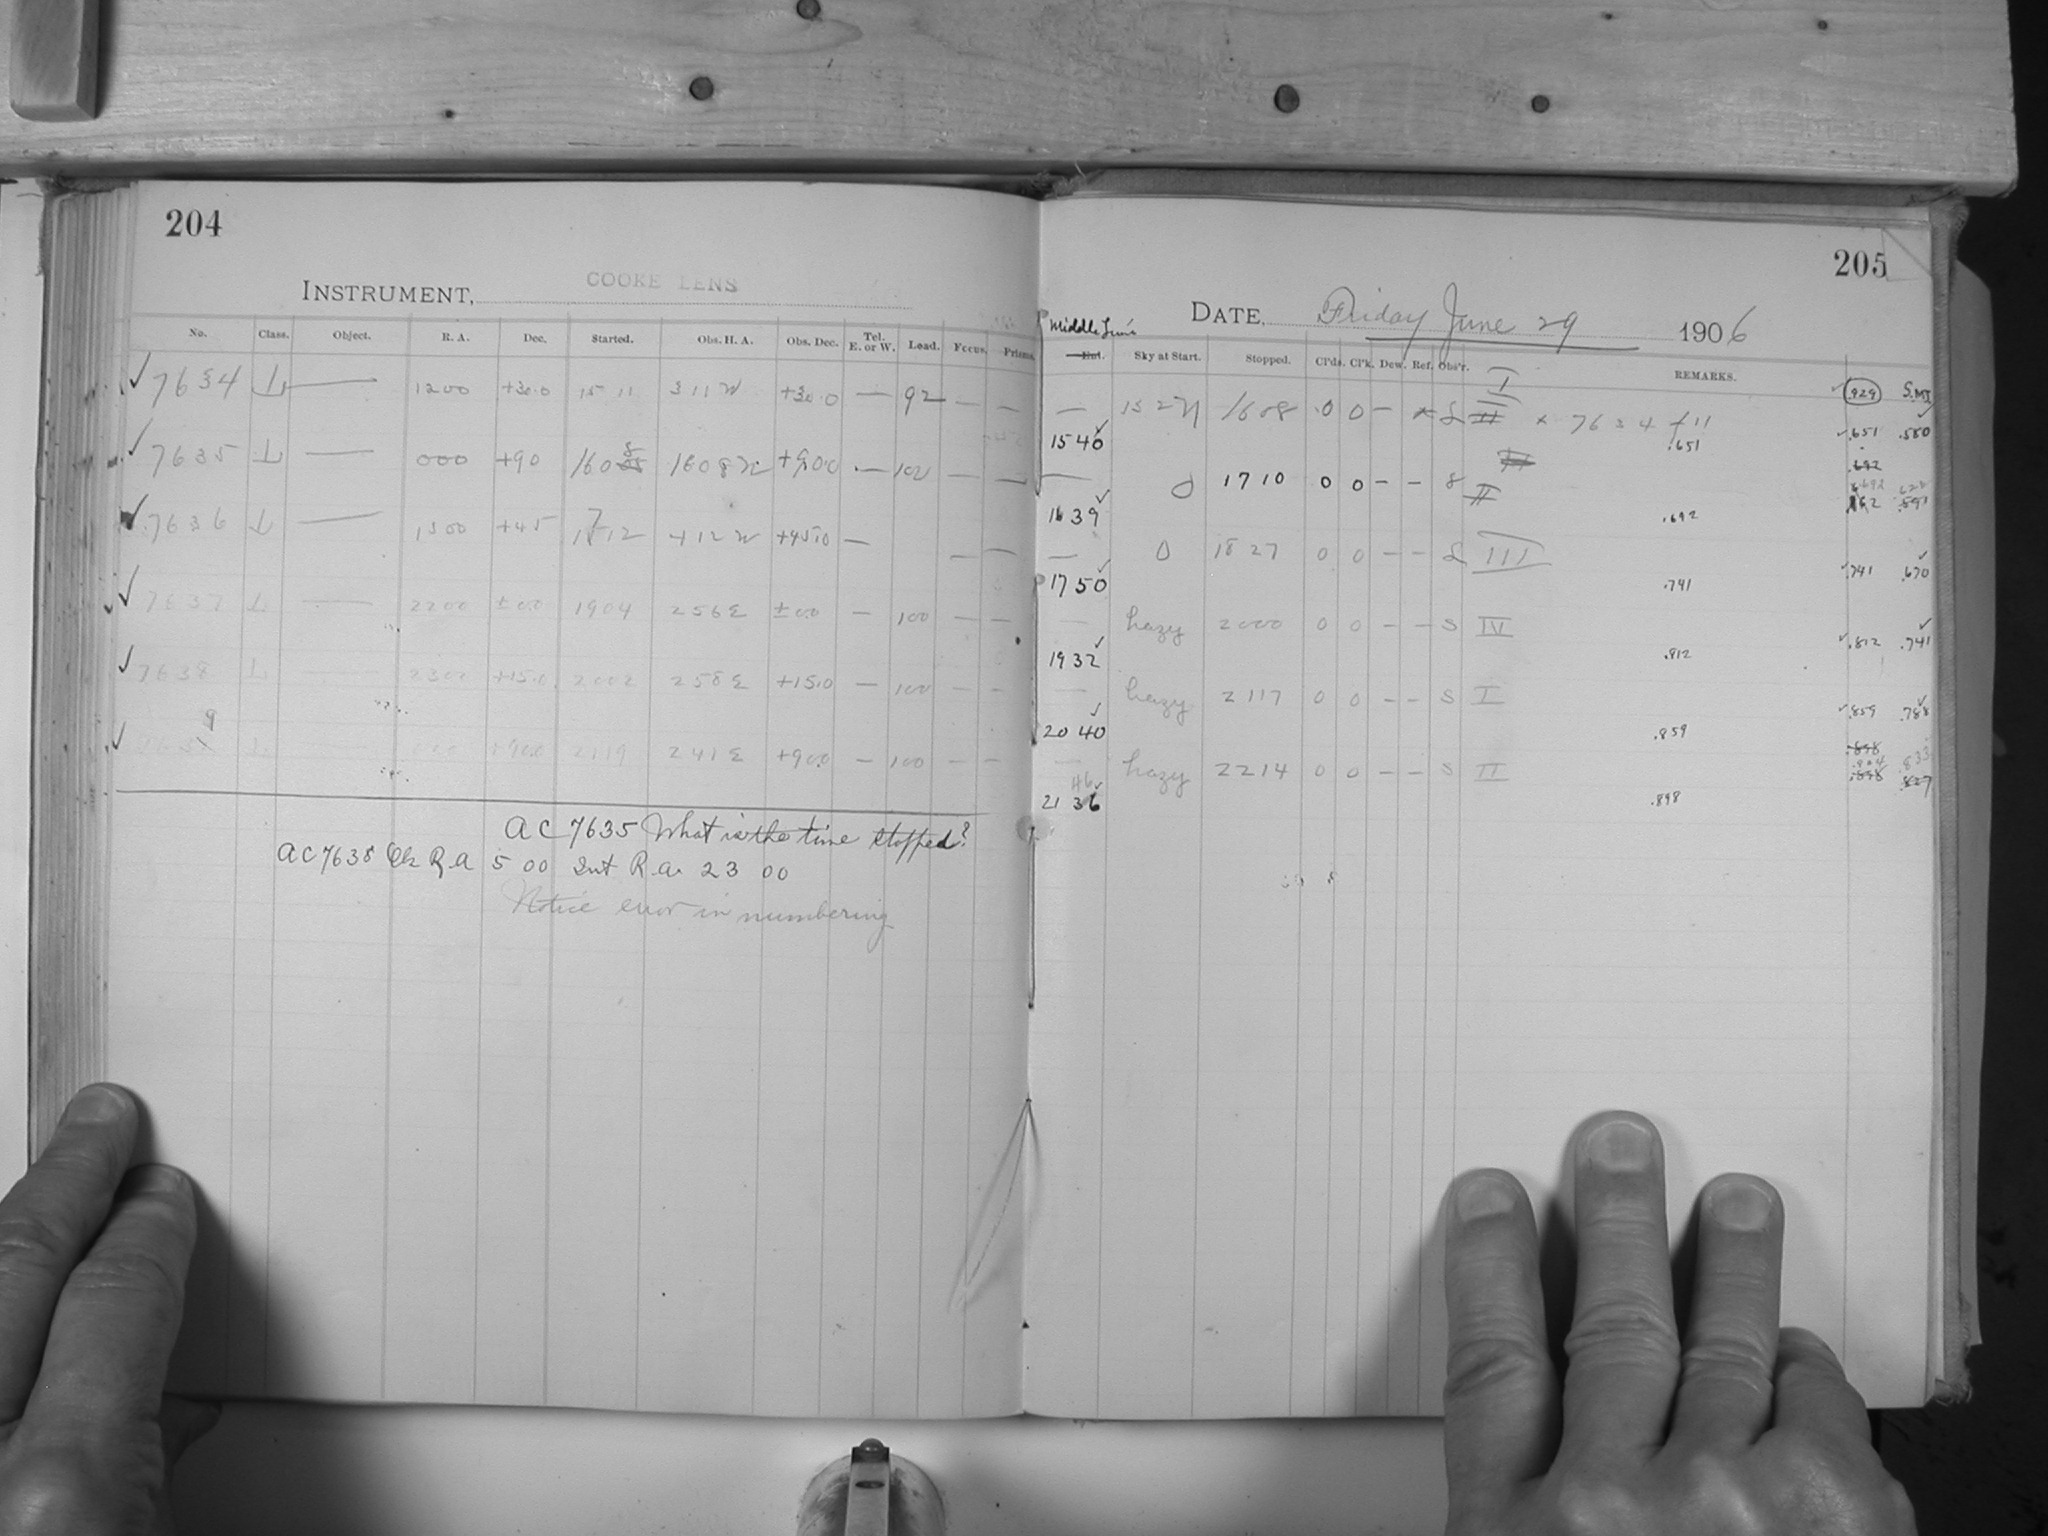 204
INSTRUMENT, COOKE LENS
No. Class. Object. R. A. Dec. Started. Obs. H. A. Obs. Dec. Tel. E. or W. Load. Focus. Prisms.
7634 L — 1200 +30.0 15 11 311 W +30.0 — 92 — —
7635 L — 000 +90 1608 1608 W +90.0 — 102 — —
7636 L — 1500 +45 1712 +112 W +45.0 — — —
7637 L — 2200 ±0.0 1904 256 E ±0.0 — 100 — —
7638 L — 2300 +15.0 2002 258 E +15.0 — 100 — —
9
L +90.0 2119 241 E +90.0 — 100 — —
AC 7635 What is the time stopped?
AC 7638 Ck R.A 5 00 Int R.A. 23 00
Notice error in numbering
205
Middle Time
DATE, Friday June 29 1906
Ent. Sky at Start. Stopped. Cl'ds. Cl'k. Dew. Ref. Obs'r. REMARKS.
.929 S.MT
I
— 1608 0 0 — × S II × 7634 f 11
1540 .651 .651 .580
— 0 1710 0 0 — — S II
1639 .692
— 0 1827 0 0 — — S III
1750 .741 .741 .670
— hazy 2000 0 0 — — S IV
1932 .812 .812 .741
— hazy 2117 0 0 — — S I
2040 .859 .859 .788
— hazy 2214 0 0 — — S II
46
2136 .898